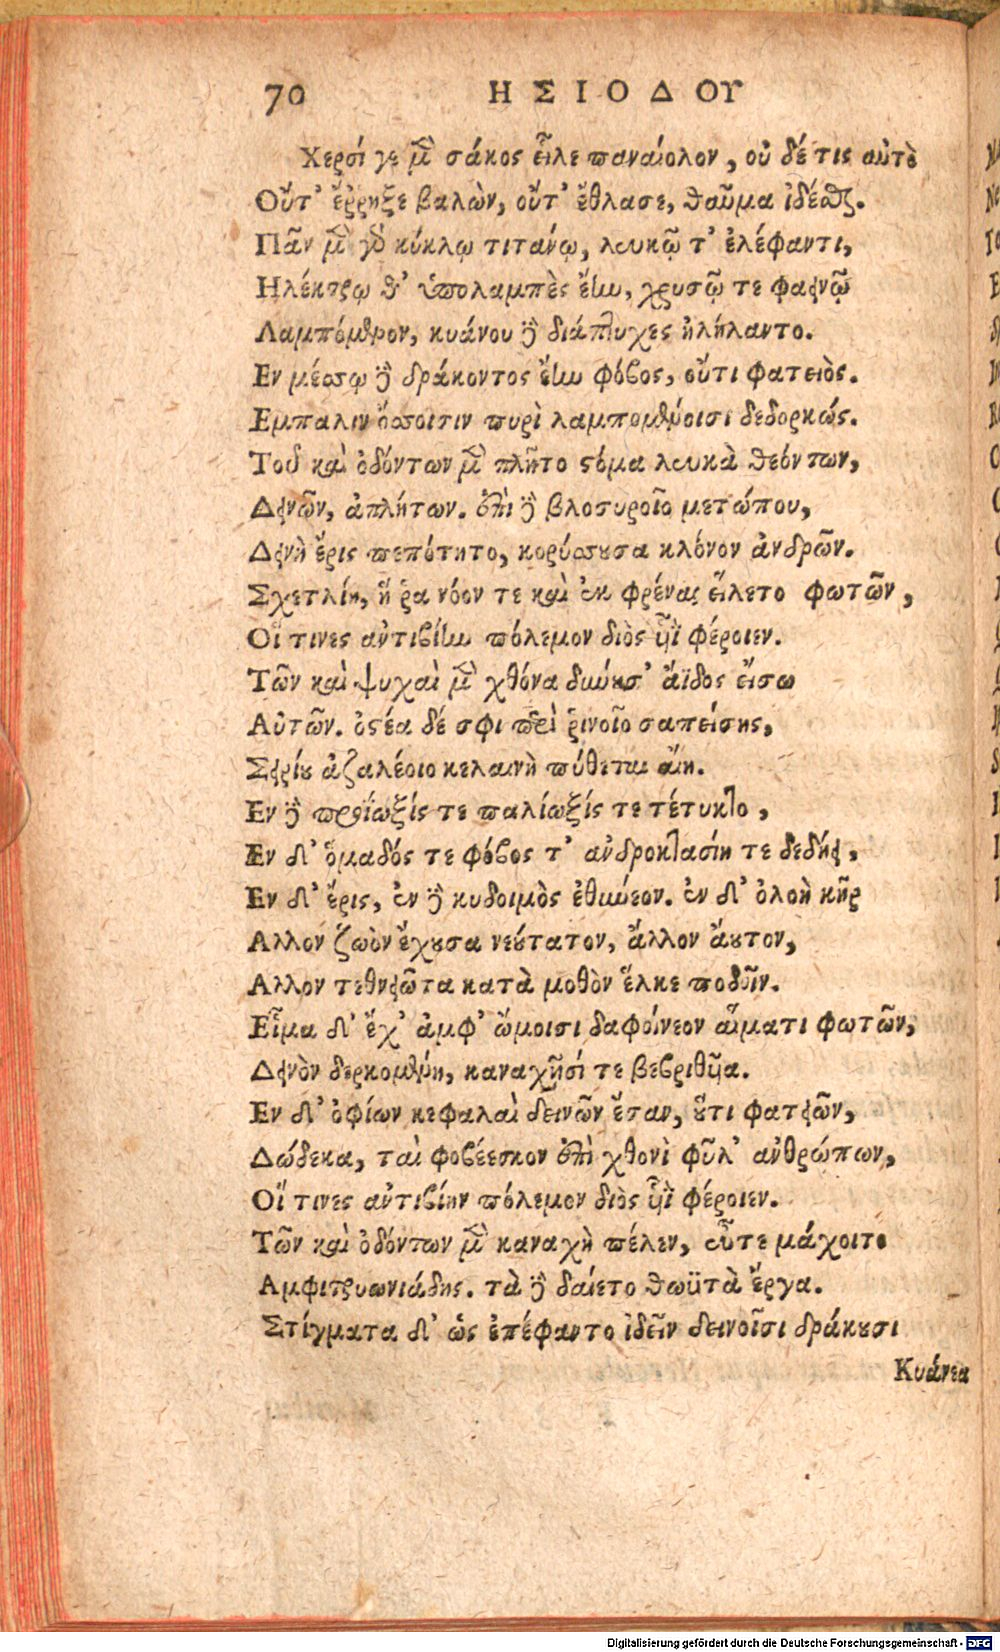 70 ΗΣΙΟΔΟΥ
Χερσί γε μὴν σάκος εἷλε παναίολον, οὐ δέ τις αὐτὸ
Οὔτ' ἔῤῥηξε βαλὼν, οὔτ' ἔθλασε, θαῦμα ἰδέσθαι.
Πᾶν μὲν γὸ κύκλῳ τιτάνῳ, λευκῷ τ' ἐλέφαντι,
Ηλέκτρῳ θ' ὑπολαμπὲς ἔην, χρυσῷ τε φαεινῷ
Λαμπόμενον, κυάνου δὲ διάπτυχες ἠλήλαντο.
Εν μέσσῳ δὲ δράκοντος ἔην φόβος, οὔτι φατειὸς.
Εμπαλιν ὄσσοισιν πυρὶ λαμπομένοισι δεδορκώς.
Τοῦ καὶ ὀδόντων μὲν πλῆτο στόμα λευκὰ θεόντων,
Δεινῶν, ἀπλήτων. ἐπὶ δὲ βλοσυροῖο μετώπου,
Δεινὴ ἔρις πεπότητο, κορύσσουσα κλόνον ἀνδρῶν.
Σχετλίη, ἥ ῥα νόον τε καὶ ἐκ φρένας εἵλετο φωτῶν,
Οἵ τινες ἀντιβίην πόλεμον διὸς υἷϊ φέροιεν.
Τῶν καὶ ψυχαὶ μὲν χθόνα δύνουσ' ἄϊδος εἴσω
Αὐτῶν. ὀστέα δέ σφι περὶ ῥινοῖο σαπείσης,
Σειρίου ἀζαλέοιο κελαινὴ πύθεται αἴη.
Εν δὲ προΐωξίς τε παλίωξίς τε τέτυκτο,
Εν δ' ὅμαδός τε φόβος τ' ἀνδροκτασίη τε δεδήει,
Εν δ' ἔρις, ἐν δὲ κυδοιμὸς ἐθύνεον. ἐν δ' ὀλοὴ κῆρ
Αλλον ζωὸν ἔχουσα νεούτατον, ἄλλον ἄουτον,
Αλλον τεθνειῶτα κατὰ μοθὸν ἕλκε ποδοῖϊν.
Εἷμα δ' ἔχ' ἀμφ' ὤμοισι δαφοίνεον αἵματι φωτῶν,
Δεινὸν δερκομένη, καναχῆσί τε βεβριθυῖα.
Εν δ' ὀφίων κεφαλαὶ δεινῶν ἔσαν, οὔτι φατειῶν,
Δώδεκα, ταὶ φοβέεσκον ἐπὶ χθονὶ φῦλ' ἀνθρώπων,
Οἵ τινες ἀντιβίην πόλεμον διὸς υἷϊ φέροιεν.
Τῶν καὶ ὀδόντων μὲν καναχὴ πέλεν, εὖτε μάχοιτο
Αμφιτρυωνιάδης. τὰ δὲ δαίετο θωϋτὰ ἔργα.
Στίγματα δ' ὡς ἐπέφαντο ἰδεῖν δεινοῖσι δράκουσι
Κυάνεα
Digitalisierung gefördert durch die Deutsche Forschungsgemeinschaft - DFG